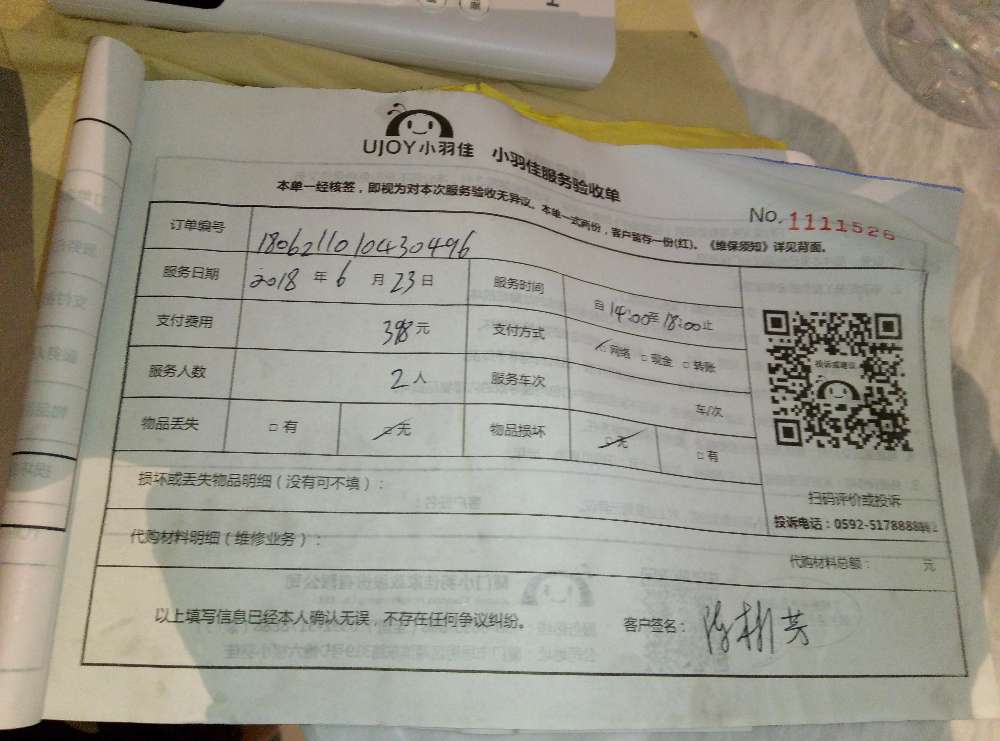 UJOY小羽佳 小羽佳服务验收单
本单一经核签，即视为对本次服务验收无异议。本单一式两份，客户留存一份(红)。《维保须知》详见背面。
No. 1111526
订单编号 1806211010430496
服务日期 2018 年 6 月 23 日 服务时间 自 14:00 至 18:00 止
支付费用 398 元 支付方式 ☑ 网络 □ 现金 □ 转账
服务人数 2 人 服务车次 车/次
物品丢失 □ 有 ☑ 无 物品损坏 ☑ 无 □ 有
投诉或建议
扫码评价或投诉
投诉电话：0592-5178888
损坏或丢失物品明细（没有可不填）：
代购材料明细（维修业务）： 代购材料总额： 元
以上填写信息已经本人确认无误，不存在任何争议纠纷。 客户签名：